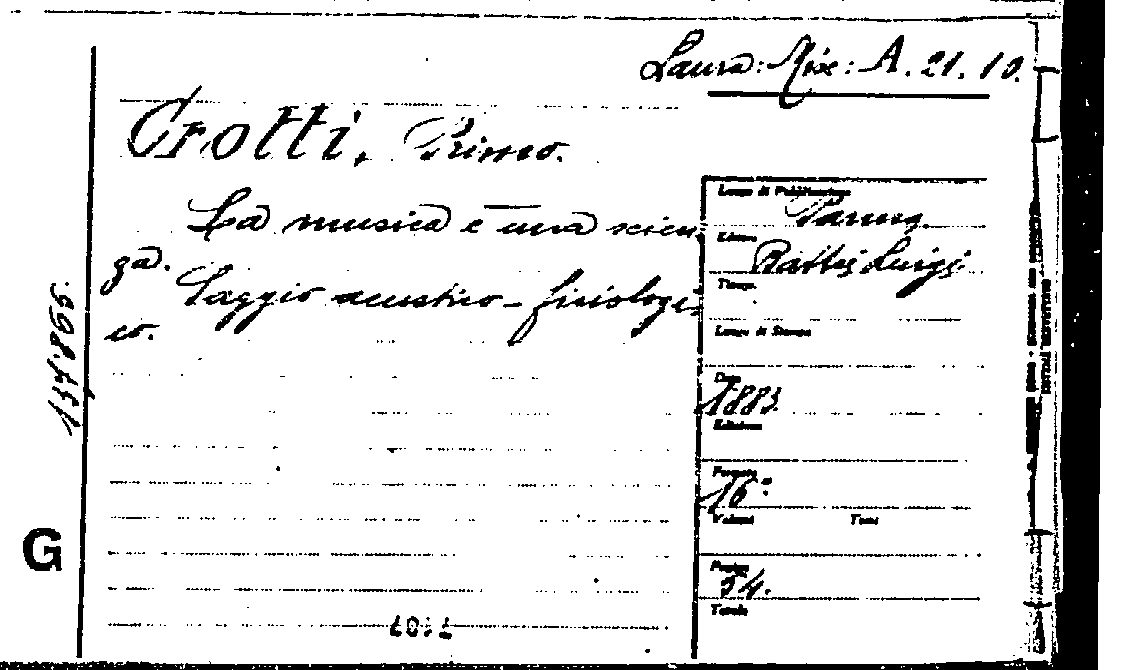 Laura: Mix: A. 21. 10.
Crotti, Primo.
La musica è una scien-
za.
Saggio acustico-fisiologi-
co.
137.865.
G
Luogo di Pubblicazione
Parma.
Editore
Battei Luigi.
Tipogr.
Luogo di Stampa
Data
1883.
Edizione
Formato
16°
Volumi Tomi
Pagine
54.
Tavole